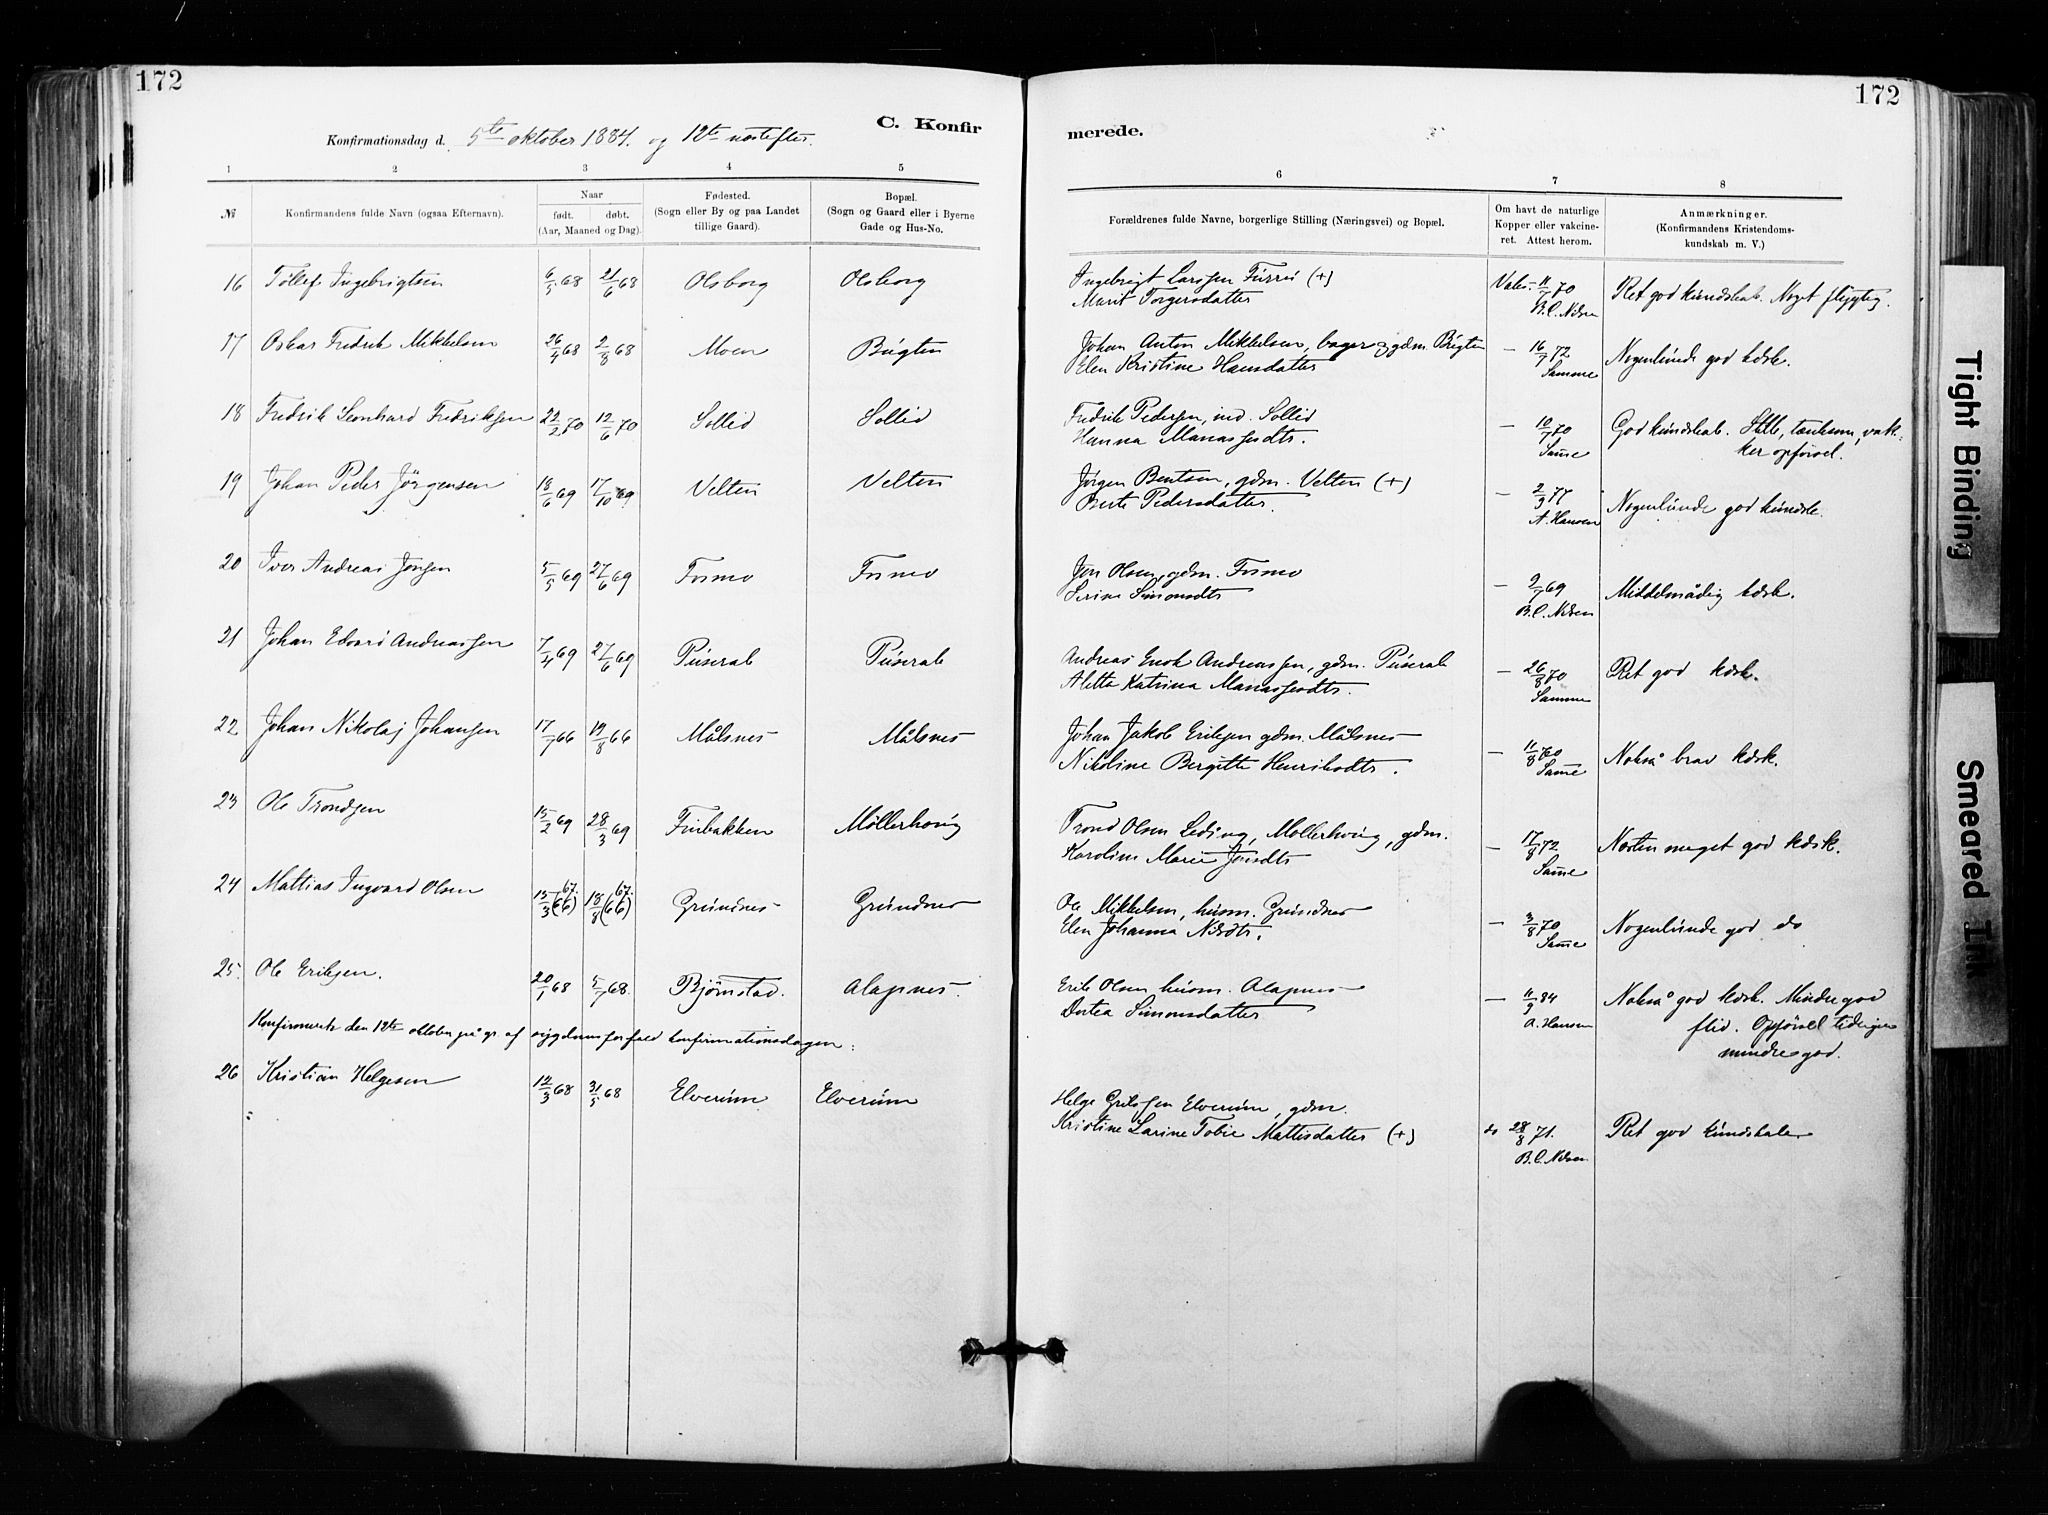 172
172
C. Konfir
merede.
Konfirmationsdag d. 5te oktober 1884. og 12te næstefter.
1 2 3 4 5 6 7 8
№
Konfirmandens fulde Navn (ogsaa Efternavn).
Naar
født. døbt.
(Aar, Maaned og Dag).
Fødested.
(Sogn eller By og paa Landet
tillige Gaard).
Bopæl.
(Sogn og Gaard eller i Byerne
Gade og Hus-No.
Forældrenes fulde Navne, borgerlige Stilling (Næringsvei) og Bopæl.
Om havt de naturlige
Kopper eller vakcine-
ret. Attest herom.
Anmærkninger.
(Konfirmandens Kristendoms-
kundskab m. V.)
16 Tollef Ingebrigtsen 6/5 68 21/6 68 Olsborg Olsborg
Ingebrigt Larssen (+)
Marit Torgersdatter
Vakc. 11/7 70
B.C. Nilsen
Ret god kundskab. Noget flygtig.
17 Oskar Fredrik Mikkelsen 26/4 68 2/8 68 Moen Bugten
Johan Anton Mikkelsen, bager og gdm. Bugten
Elen Kristine Hansdatter
– 16/7 72
Samme
Nogenlunde god kdsk.
18 Fredrik Leonhard Fredriksen 22/2 70 12/6 70 Sollid Sollid
Fredrik Pedersen, ind. Sollid
Hanna Manassesdtr.
– 10/7 70
Samme
God kundskab. Stille, tænksom, vak-
ker opførsel.
19 Johan Peder Jørgensen 18/6 69 17/10 69 Velten Velten
Jørgen Bentsen, gdm. Velten (+)
Berte Pedersdatter.
– 2/3 77
A. Hansen
Nogenlunde god kundsk.
20 Iver Andreas Jonsen 5/5 69 27/6 69 Fosmo Fosmo
Jon Olsen, gdm. Fosmo
Serine Simonsdtr
– 2/7 69
B.C. Nilsen
Middelmådig kdsk.
21 Johan Edvard Andreassen 7/4 69 27/6 69 Puserab Puserab
Andreas Enok Andreassen, gdm. Puserab
Aletta Katrina Manassesdtr.
– 26/8 70
Samme
Ret god kdsk.
22 Johan Nikolaj Johansen 17/7 66 19/8 66 Målsnes Målsnes
Johan Jakob Eriksen gdm. Målsnes
Nikoline Bergitte Henriksdtr.
– 11/8 70
Samme
Nokså brav kdsk.
23 Ole Trondsen 15/2 69 28/3 69 Furbakken Møllerhaug
Trond Olsen Leding, Møllerhaug, gdm.
Karoline Marie Jonsdtr
– 17/8 72
Samme
Næsten meget god kdsk.
24 Mattias Ingvard Olsen 15/3 (66) 67. 18/8 (66) 67. Grundnes Grundnes
Ole Mikkelsen, husm. Grundnes
Elen Johanna Nilsdtr.
– 3/8 70
Samme
Nogenlunde god do
25. Ole Eriksen. 20/1 68 5/7 68. Bjørnstad. Alapnes.
Erik Olsen husm. Alapnes
Dortea Simonsdatter
– 11/9 84
A. Hansen
Nokså god kdsk. Mindre god
flid. Opførsel tidligere
mindre god.
Konfirmeret den 12te oktober på gr. af sygdomsforfald konfirmationsdagen.
26 Kristian Helgesen 12/3 68 31/5 68 Elverum Elverum
Helge Erikssen Elverum, gdm.
Kristine Larine Tobie Mattisdatter (+)
do 28/8 71.
B.C. Nilsen
Ret god kundskab
Tight Binding
Smeared Ink